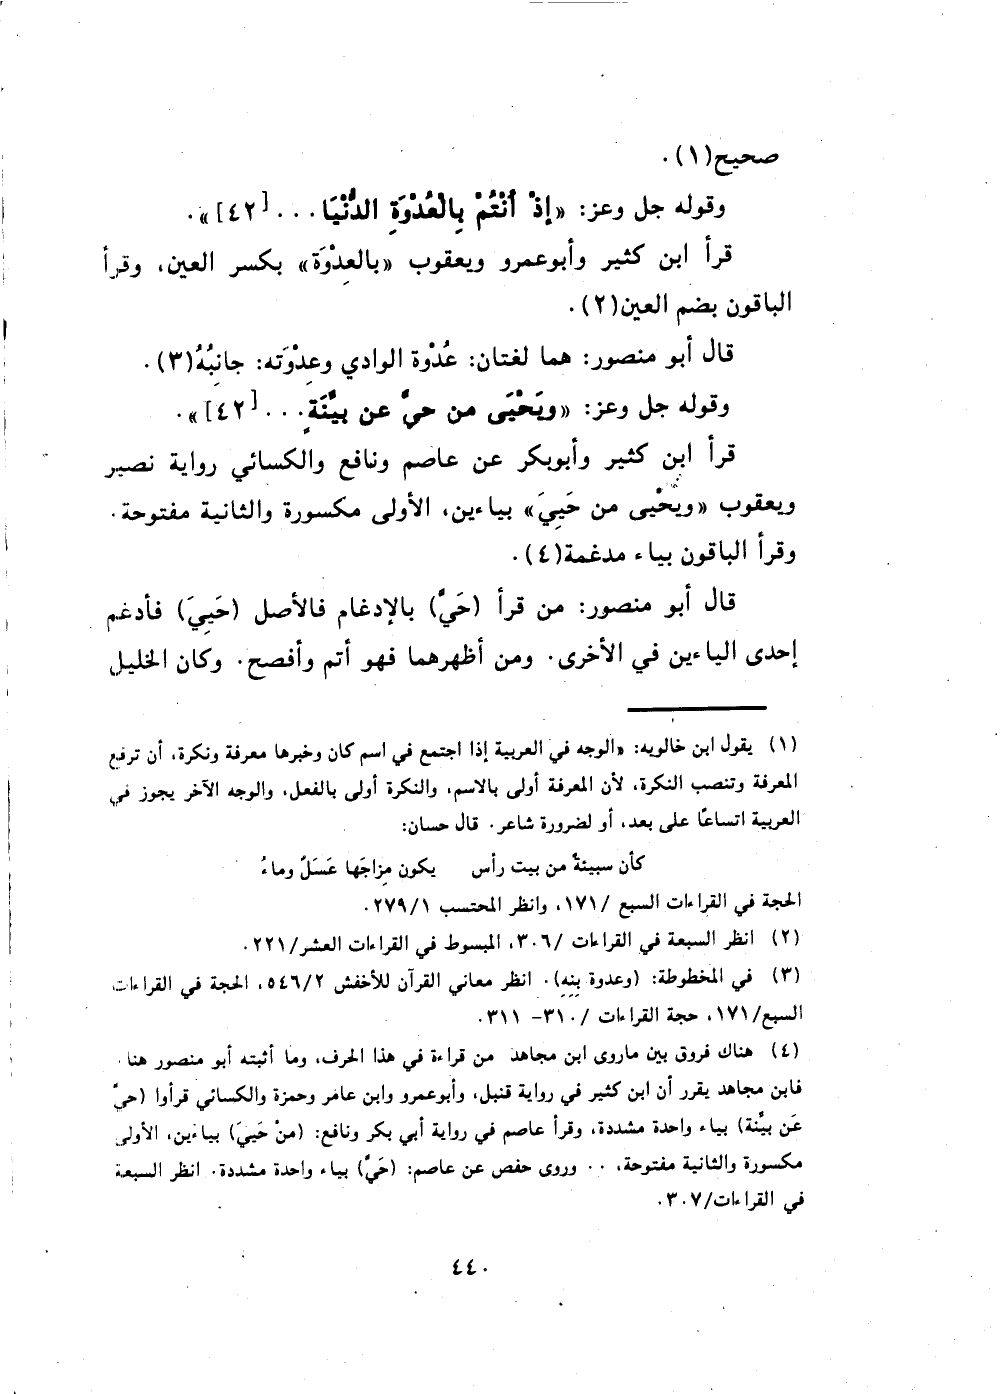 صحيح(١).
وقوله جل وعز: «إذْ أنْتُمْ بِالْعُدْوَةِ الدُّنْيَا ... [٤٢]».
قرأ ابن كثير وأبوعمرو ويعقوب «بالعِدْوَة» بكسر العين، وقرأ
الباقون بضم العين(٢).
قال أبو منصور: هما لغتان: عُدْوة الوادي وعِدْوَته: جانِبُهُ(٣).
وقوله جل وعز: «ويَحْيَى من حيَّ عن بيِّنَةٍ... [٤٢]».
قرأ ابن كثير وأبوبكر عن عاصم ونافع والكسائي رواية نصير
ويعقوب «ويَحْيى من حَيِيَ» بياءين، الأولى مكسورة والثانية مفتوحة.
وقرأ الباقون بياء مدغمة(٤).
قال أبو منصور: من قرأ (حَيَّ) بالإدغام فالأصل (حَيِيَ) فأدغم
إحدى الياءين في الأخرى. ومن أظهرهما فهو أتم وأفصح. وكان الخليل
(١) يقول ابن خالويه: «الوجه في العربية إذا اجتمع في اسم كان وخبرها معرفة ونكرة، أن ترفع
المعرفة وتنصب النكرة، لأن المعرفة أولى بالاسم، والنكرة أولى بالفعل، والوجه الآخر يجوز في
العربية اتساعًا على بعد، أو لضرورة شاعر. قال حسان:
كأن سبيئةً من بيت رأس يكون مِزاجَها عَسَلٌ وماءُ
الحجة في القراءات السبع /١٧١، وانظر المحتسب ٢٧٩/١.
(٢) انظر السبعة في القراءات /٣٠٦، المبسوط في القراءات العشر/٢٢١.
(٣) في المخطوطة: (وعدوة بِنِهِ). انظر معاني القرآن للأخفش ٥٤٦/٢، الحجة في القراءات
السبع/١٧١، حجة القراءات /٣١٠- ٣١١.
(٤) هناك فروق بين ماروى ابن مجاهد من قراءة في هذا الحرف، وما أثبته أبو منصور هنا.
فابن مجاهد يقرر أن ابن كثير في رواية قنبل، وأبوعمرو وابن عامر وحمزة والكسائي قرأوا (حيَّ
عَن بيِّنة) بياء واحدة مشددة، وقرأ عاصم في رواية أبي بكر ونافع: (منْ حَيِيَ) بياءين، الأولى
مكسورة والثانية مفتوحة، .. وروى حفص عن عاصم: (حَيَّ) بياء واحدة مشددة. انظر السبعة
في القراءات/٣٠٧.
٤٤٠